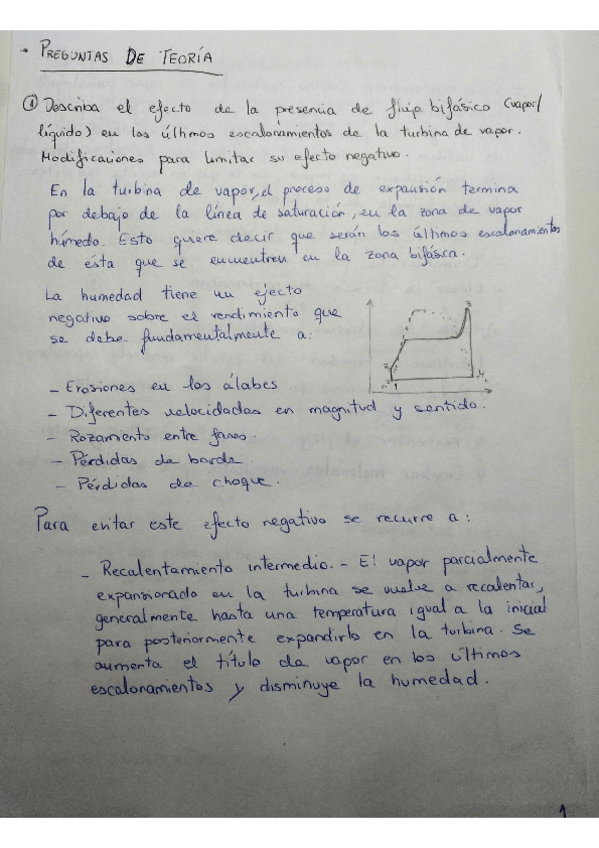 → PREGUNTAS DE TEORÍA
① Describa el efecto de la presencia de flujo bifásico (vapor/
líquido) en los últimos escalonamientos de la turbina de vapor.
Modificaciones para limitar su efecto negativo.
En la turbina de vapor, el proceso de expansión termina
por debajo de la línea de saturación, en la zona de vapor
húmedo. Esto quiere decir que serán los últimos escalonamientos
de ésta que se encuentren en la zona bifásica.
La humedad tiene un efecto
negativo sobre el rendimiento que
se debe fundamentalmente a:
1
- Erosiones en los álabes
- Diferentes velocidades en magnitud y sentido.
- Rozamiento entre fases.
- Pérdidas de borde.
- Pérdidas de choque.
Para evitar este efecto negativo se recurre a:
- Recalentamiento intermedio. - El vapor parcialmente
expansionado en la turbina se vuelve a recalentar,
generalmente hasta una temperatura igual a la inicial
para posteriormente expandirlo en la turbina. Se
aumenta el título de vapor en los últimos
escalonamientos y disminuye la humedad.
1